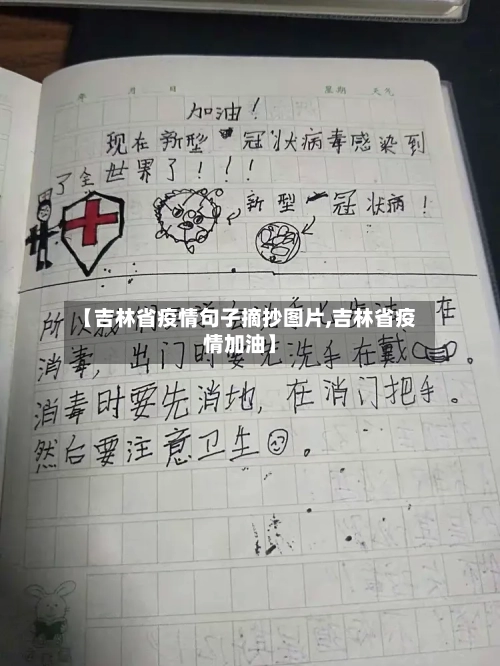 年 月 日 星期 天气
加油！
现在新型 冠状病毒感染到
了全世界了！！！
新型 冠状病！
所以我们 在
【吉林省疫情句子摘抄图片,吉林省疫
情加油】
消毒，出门时要先洗手在戴 。
消毒时要先消地，在消门把手。
然后要注意卫生 。